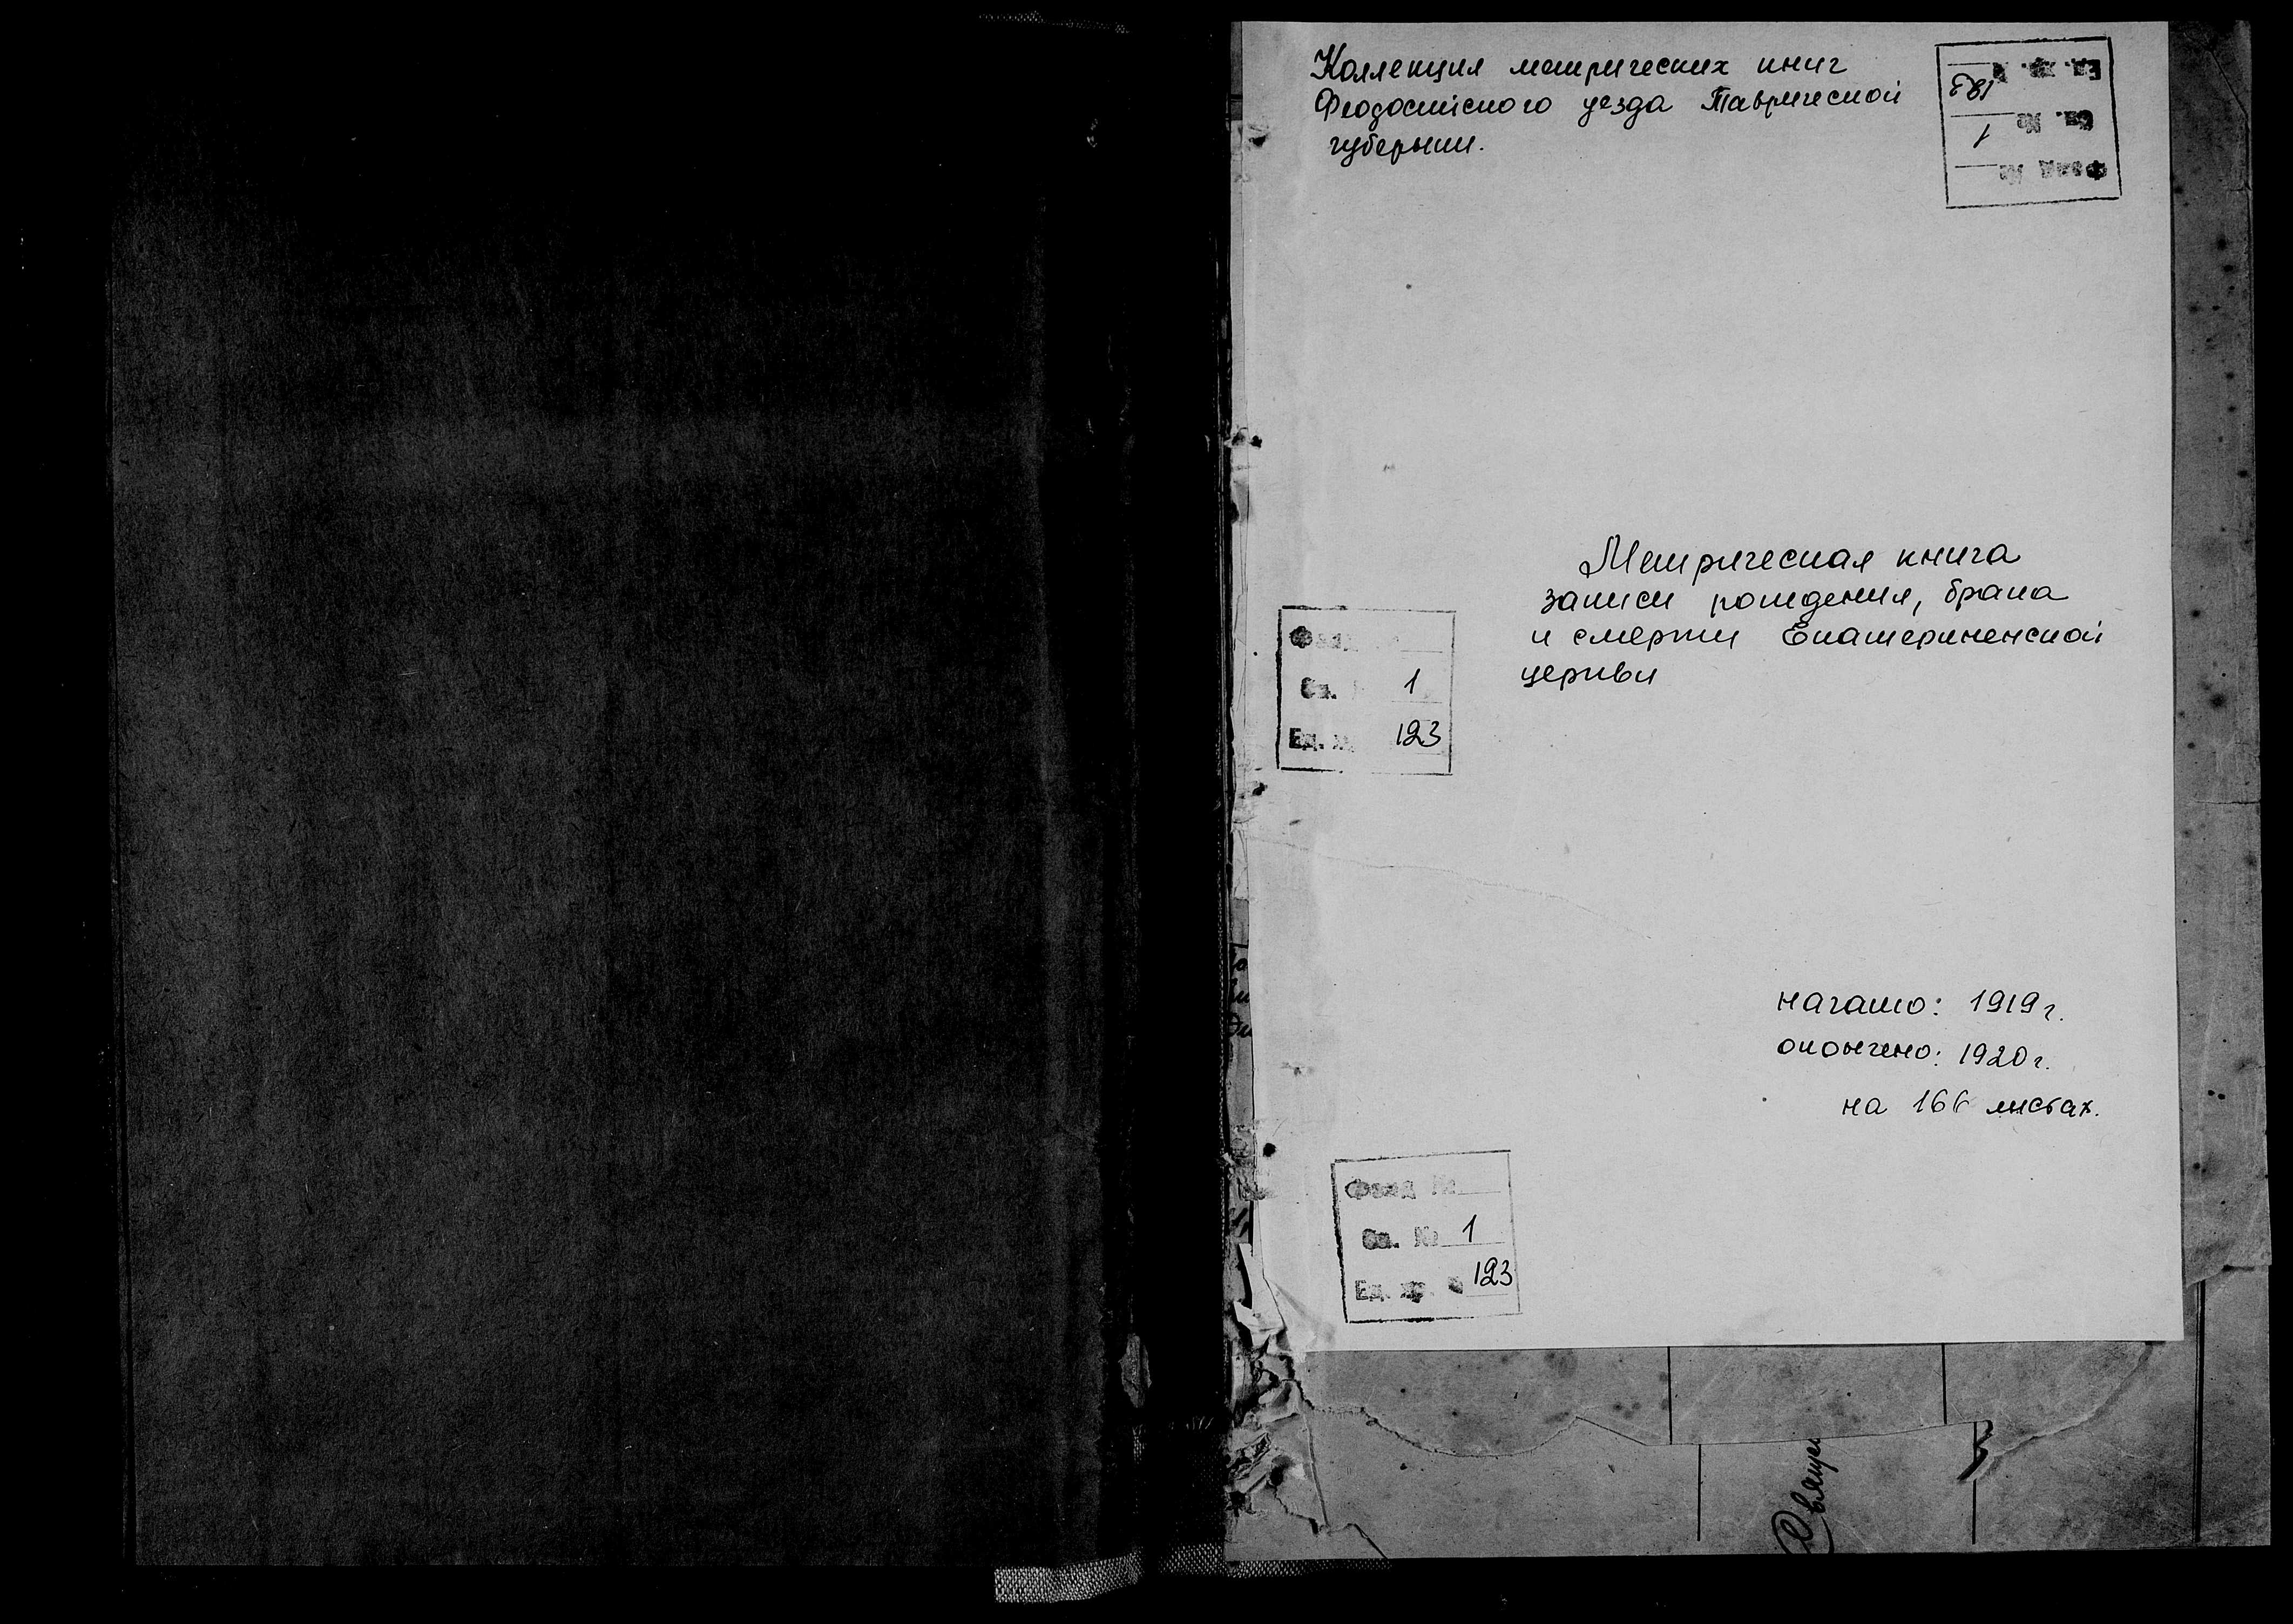 Коллекция метрических книг
Феодосийского уезда Таврической
губернии.
Ед. хр. № 123
Св. № 1
Фонд №
Метрическая книга
записи рождения, брака
и смерти Екатериненской
церкви
Фонд
Св. 1
Ед. х 123
начато: 1919 г.
окончено: 1920 г.
на 166 листах.
Фонд №
Св. № 1
Ед. хр. 123
Священ